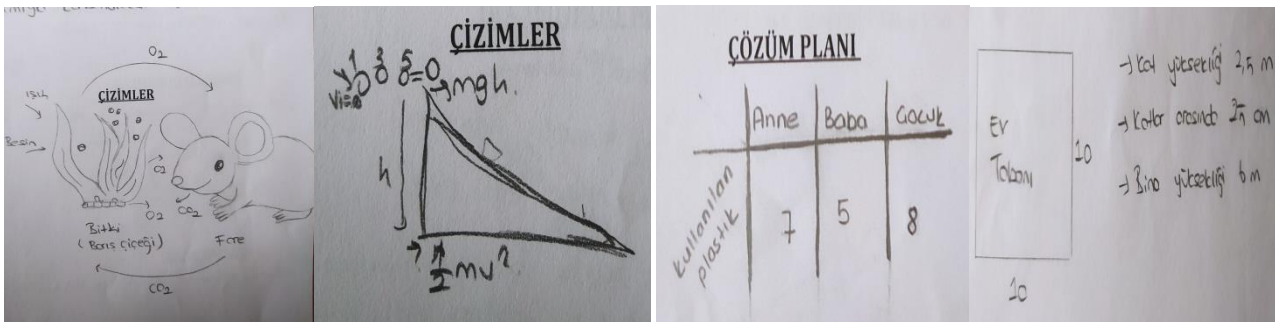 O₂
ÇİZİMLER
Işık
Besin
O₂
O₂
CO₂
Bitki
(Barış çiçeği)
Fare
CO₂
ÇİZİMLER
1 3 5
Vi=0
=0
mgh.
h
½mv²
ÇÖZÜM PLANI
Anne Baba Çocuk
kullanılan
plastik
7 5 8
Ev
Tabanı
10
10
→ Kat yüksekliği 2,5 m
→ Katlar arasında
→ Bina yüksekliği 6 m